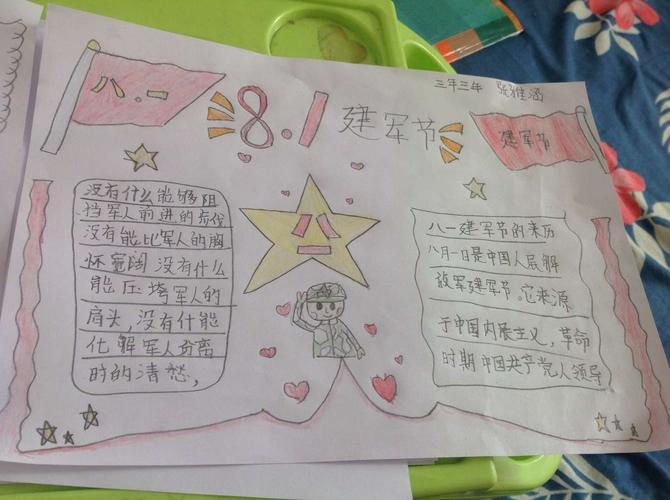 三年三年 张雅涵
八.一
8.1
建军节
建军节
没有什么能够阻
挡军人前进的步伐
没有能比军人的胸
怀宽阔没有什么
能压垮军人的
肩头,没有什能
化解军人分离
时的清愁,
八一
八一建军节的来历
八月一日是中国人民解
放军建军节。它来源
于中国内展主义,革命
时期中国共产党人领导